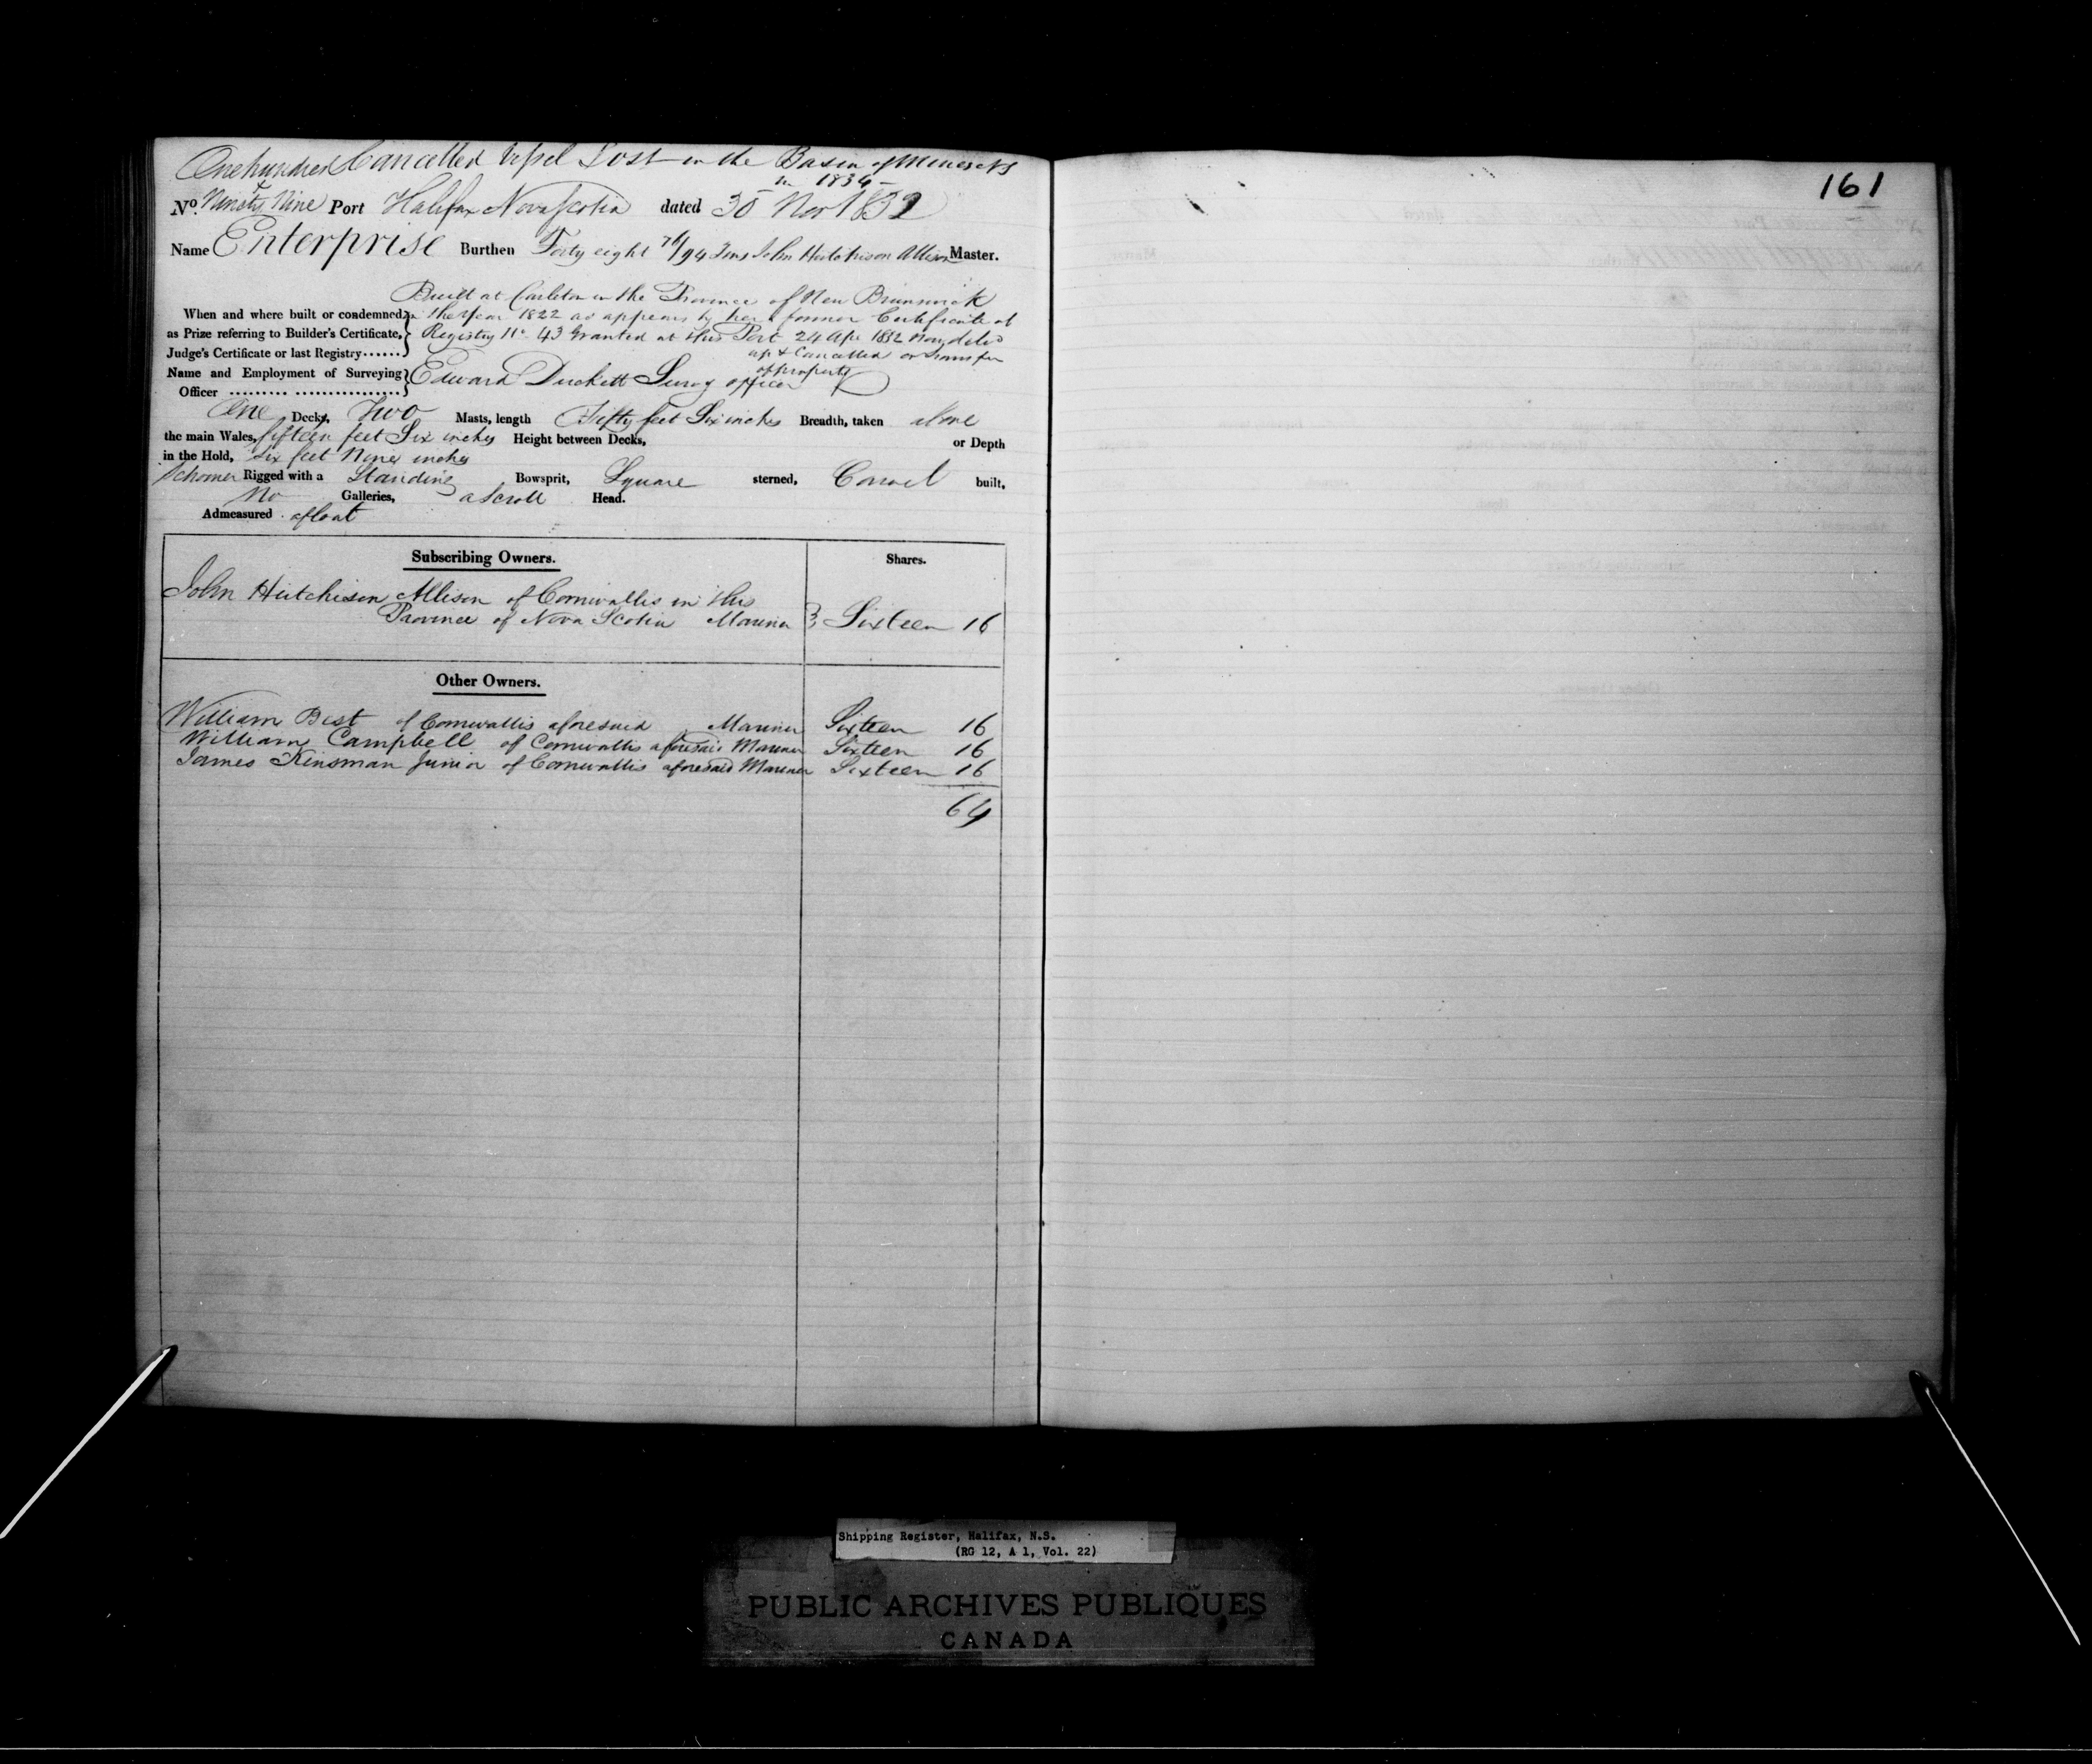 One hundred Cancelled Vessel Lost in the Basin of Mines NS
in 1834
& No. Ninety Nine Port Halifax Nova Scotia dated 30 Nov 1832
Name Enterprise Burthen Forty eight 76/94 Tons John Hutchison Allison Master.
Built at Carleton in the Province of New Brunswick
When and where built or condemned in the Year 1822 as appears by her former Certificate of
as Prize referring to Builder's Certificate, Registry No 43 Granted at this Port 24 Apr 1832 Now deld
Judge's Certificate or last Registry...... up & Cancelled on transfer
of property
Name and Employment of Surveying Edward Duckett Survg officer
Officer
One Decks, Two Masts, length Fifty feet Six inches Breadth, taken above
the main Wales, fifteen feet Six inches Height between Decks, or Depth
in the Hold, Six feet Nine inches
Schooner Rigged with a Standing Bowsprit, Square sterned, Carvel built,
No Galleries, a scroll Head.
Admeasured afloat
Subscribing Owners. Shares.
John Hutchison Allison of Cornwallis in this
Province of Nova Scotia Mariner } Sixteen 16
Other Owners.
William Best of Cornwallis aforesaid Mariner Sixteen 16
William Campbell of Cornwallis aforesaid Mariner Sixteen 16
James Kinsman Junior of Cornwallis aforesaid Mariner Sixteen 16
64
161
Shipping Register, Halifax, N.S.
(RG 12, A 1, Vol. 22)
PUBLIC ARCHIVES PUBLIQUES
CANADA